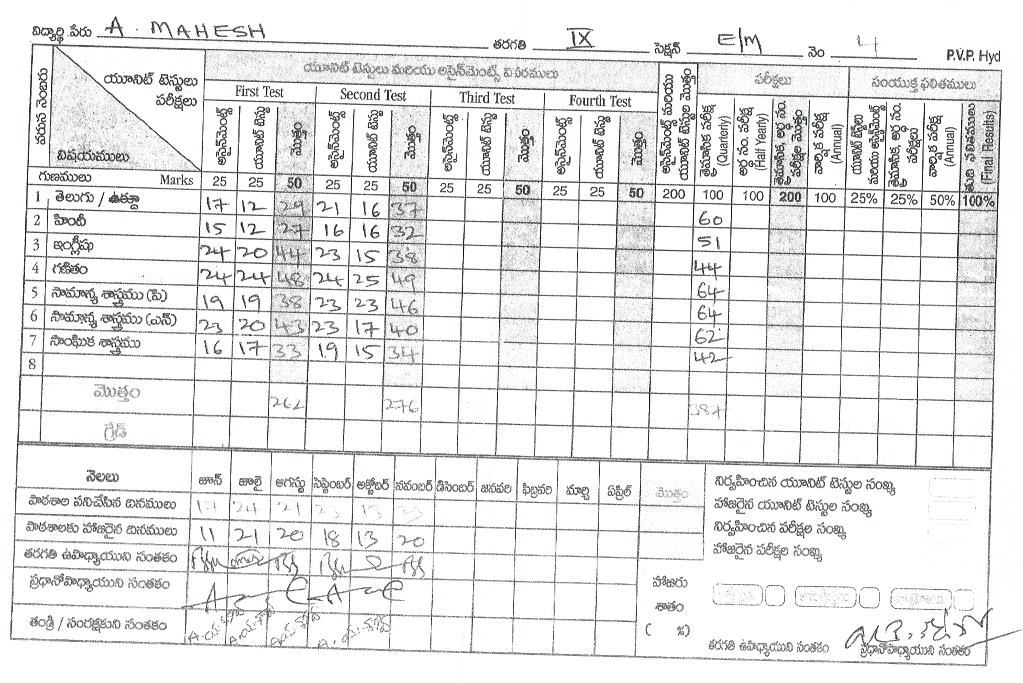 విద్యార్థి పేరు A. MAHESH తరగతి IX సెక్షన్ E/M నెం 4 P.V.P. Hyd
వరుస నెంబరు యూనిట్ టెస్టులు పరీక్షలు విషయములు
యూనిట్ టెస్టులు మరియు అసైన్‌మెంట్స్ వివరములు పరీక్షలు సంయుక్త ఫలితములు
First Test Second Test Third Test Fourth Test
అసైన్‌మెంట్స్ యూనిట్ టెస్టు మొత్తం అసైన్‌మెంట్స్ యూనిట్ టెస్టు మొత్తం అసైన్‌మెంట్స్ యూనిట్ టెస్టు మొత్తం అసైన్‌మెంట్స్ యూనిట్ టెస్టు మొత్తం అసైన్‌మెంట్స్ మరియు యూనిట్ టెస్టుల మొత్తం త్రైమాసిక పరీక్ష (Quarterly) అర్ధ సం. పరీక్ష (Half Yearly) త్రైమాసిక, అర్ధ సం. పరీక్షల మొత్తం వార్షిక పరీక్ష (Annual) యూనిట్ టెస్టులు మరియు అసైన్‌మెంట్స్ త్రైమాసిక, అర్ధ సం. పరీక్షలు వార్షిక పరీక్ష (Annual) తుది ఫలితములు (Final Results)
గుణములు Marks 25 25 50 25 25 50 25 25 50 25 25 50 200 100 100 200 100 25% 25% 50% 100%
1 తెలుగు / ఉర్దూ 17 12 29 21 16 37 60
2 హిందీ 15 12 27 16 16 32 51
3 ఇంగ్లీషు 24 20 44 23 15 38 44
4 గణితం 24 24 48 24 25 49 64
5 సామాన్య శాస్త్రము (పి) 19 19 38 23 23 46 64
6 సామాన్య శాస్త్రము (ఎన్) 23 20 43 23 17 40 62
7 సాంఘిక శాస్త్రము 16 17 33 19 15 34 42
8
మొత్తం 262 276 387
గ్రేడ్
నెలలు జూన్ జూలై ఆగస్టు సెప్టెంబర్ అక్టోబర్ నవంబర్ డిసెంబర్ జనవరి ఫిబ్రవరి మార్చి ఏప్రిల్ మొత్తం
పాఠశాల పనిచేసిన దినములు 24 21 23 13 23
పాఠశాలకు హాజరైన దినములు 11 21 20 18 13 20
తరగతి ఉపాధ్యాయుని సంతకం
ప్రధానోపాధ్యాయుని సంతకం
తండ్రి / సంరక్షకుని సంతకం
నిర్వహించిన యూనిట్ టెస్టుల సంఖ్య
హాజరైన యూనిట్ టెస్టుల సంఖ్య
నిర్వహించిన పరీక్షల సంఖ్య
హాజరైన పరీక్షల సంఖ్య
హాజరు
శాతం
( %)
తరగతి ఉపాధ్యాయుని సంతకం ప్రధానోపాధ్యాయుని సంతకం